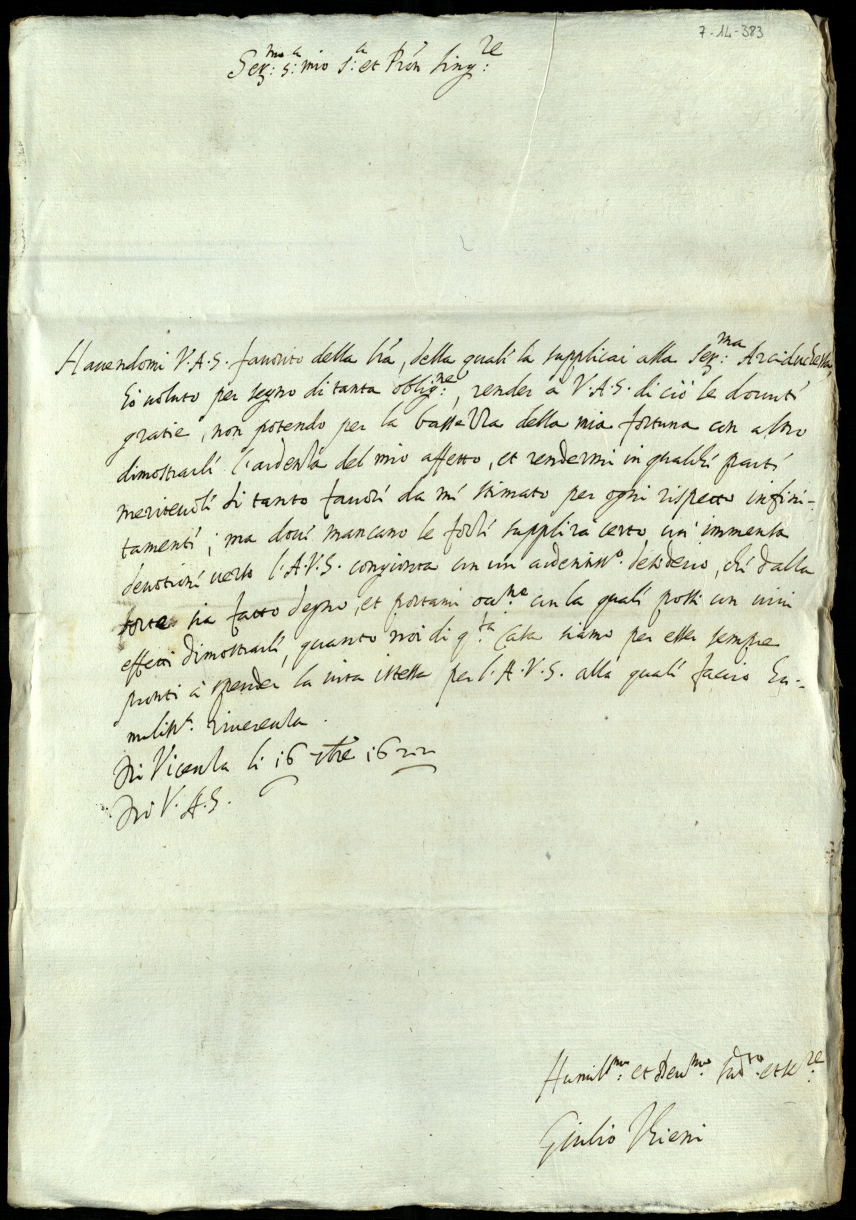 7-14-383
Ser:ma S:a mio S:a et Prón Sing:re
Hauendomi V.A.S. fauorito della lrã, della quali la supplicai alla Ser:ma Arciduchessa,
ho uoluto per segno di tanta oblig:ne, render à V.A.S. di ciò le douuti
gratie, non potendo per la bassezza della mia fortuna con altro
dimostrarli l'ardenza del mio affetto, et rendermi in qualchi parti
meriteuoli di tanto fauori da mi stimato per ogni rispetto infini-
tamenti; ma doui mancano le forzi supplirà certo un' immensa
deuotioni uerso l'A.V.S. congionta con un ardentiss.o desiderio, chi dalla
sorte sia fatto degno, et portami occ.ne con la quali possi con uiui
effetti dimostrarli, quanto noi di q.ta Casa siamo per esser sempre
pronti à spender la uita istessa per l'A.V.S. alla quali faccio hu-
miliss.a riuerenza.
Di Vicenza li 16 7bre 1622
Di V.A.S.
Humiliss.mo: et Deu.mo: Sud.to et se:re
Giulio